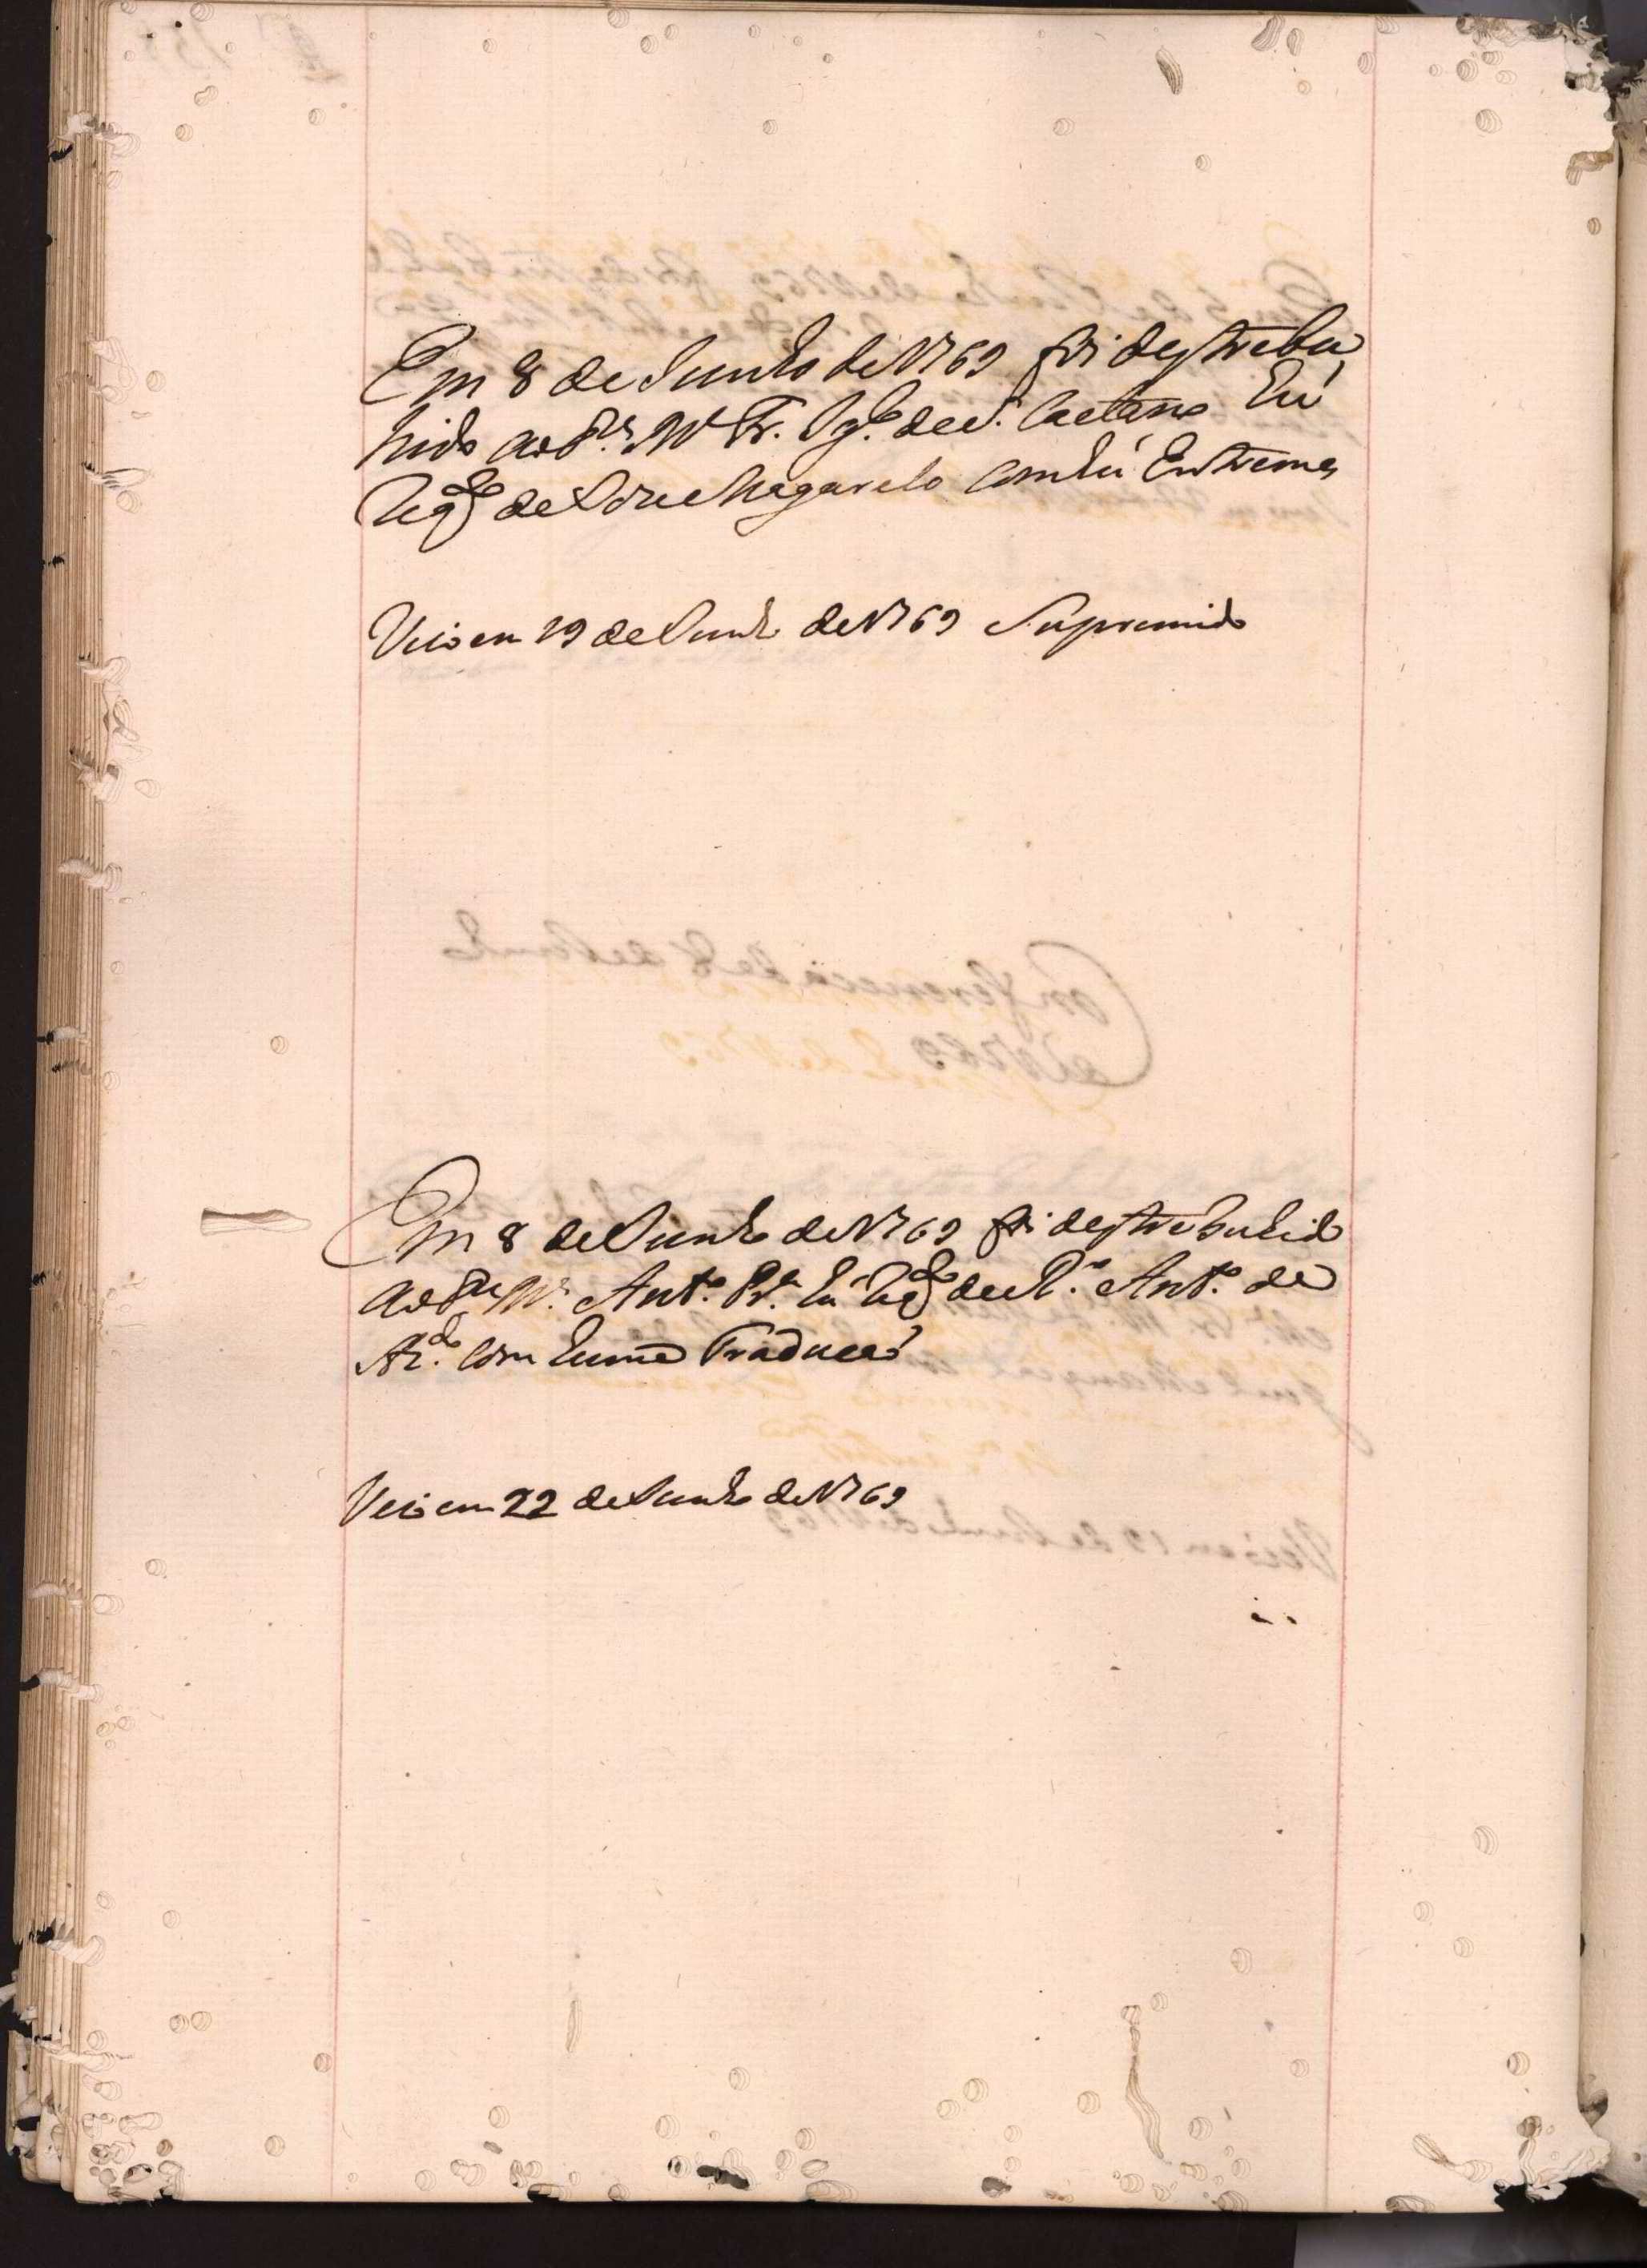 Em 8 de Junho de 1769 foi destrebu,
hido ao Pe. Me. Fr. Ige. de S. Caetano hú
Reqto. de Magavelo Com hú Entremes
Veio em 19 de Junho de 1769 Supremido
Em 8 de Junho de 1769 foi destrebuhido
ao Pe. Me. Anto. Pra. hú Reqto. de Anto. de
Com huma Traducçaõ
Veio em 22 de Junho de 1769